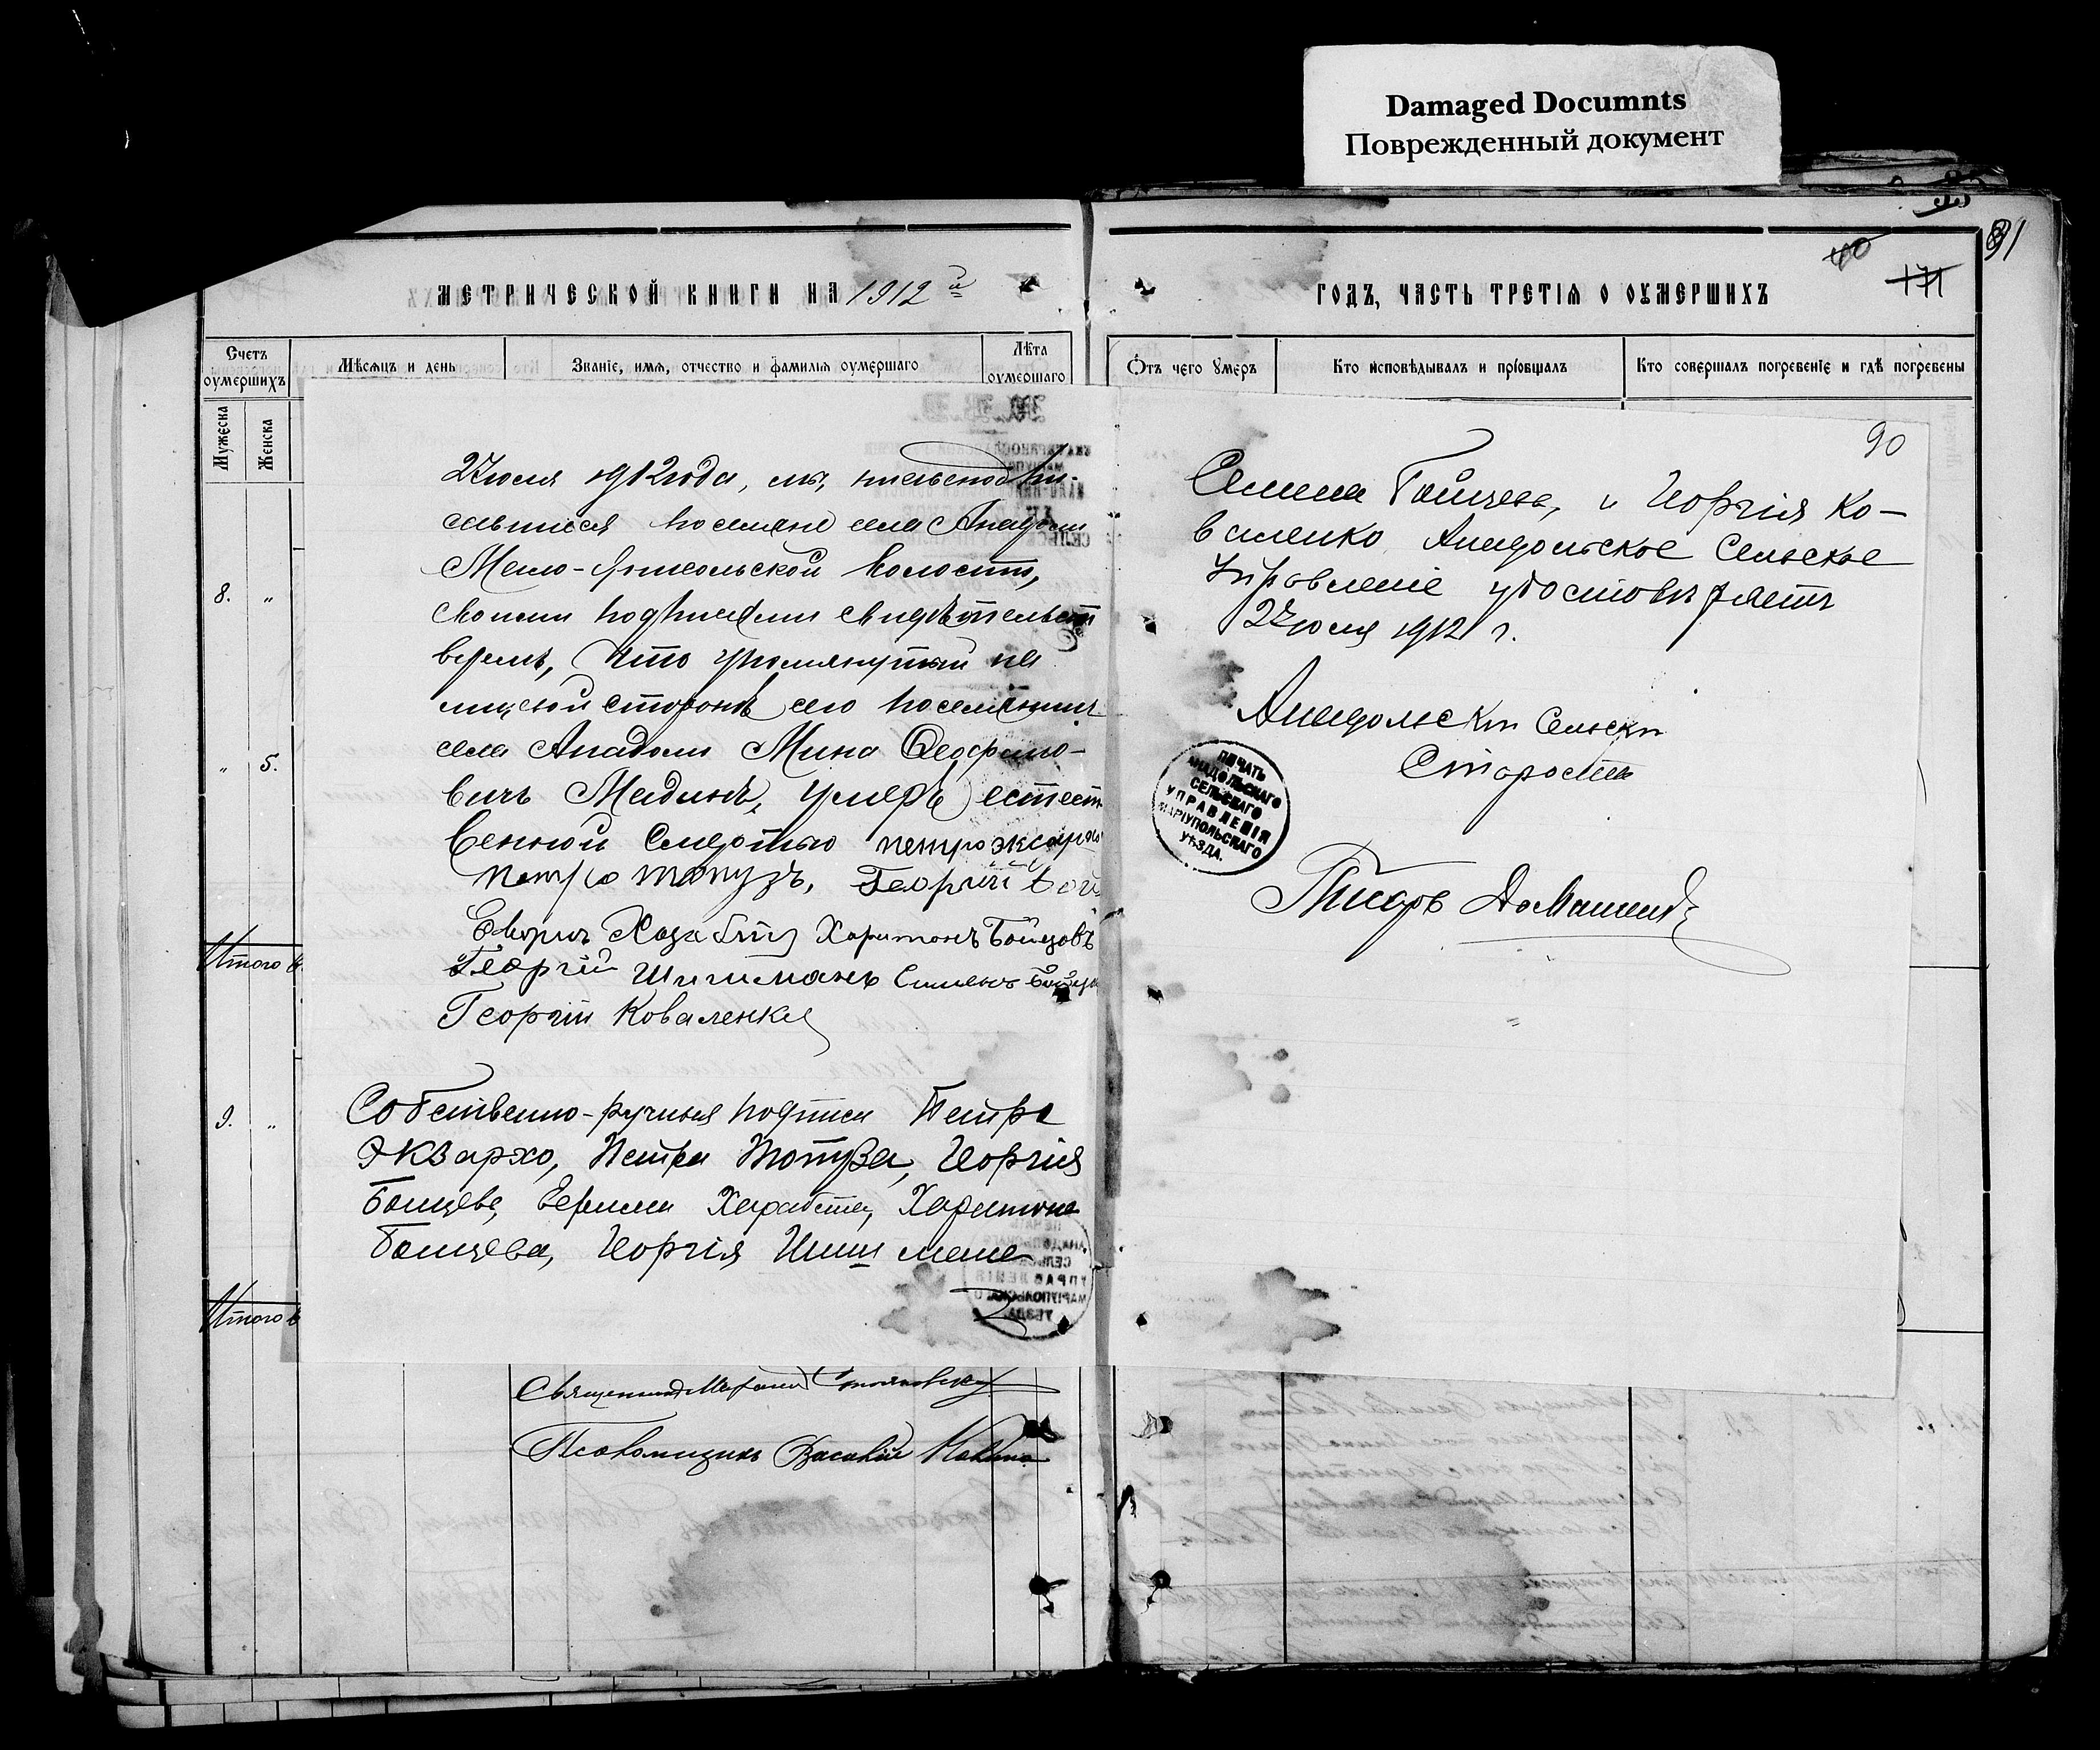 Damaged Documnts
Поврежденный документ
91
40
171
МЕТРИЧЕСКОЙ КНИГИ НА 1912 й
ГОДЪ, ЧАСТЬ ТРЕТІЯ О ОУМЕРШИХЪ
Счетъ оумершихъ
Мужеска
Женска
Мѣсяцъ и день
Званіе, имя, отчество и фамилія оумершаго
Лѣта оумершаго
Отъ чего умеръ
Кто исповѣдывалъ и пріобщалъ
Кто совершалъ погребеніе и гдѣ погребены
8. "
" 5.
Итого
9. "
Итого
2 Июля 1912 года, мы, нижеподпи-
савшиеся поселяне села Анадоли
Мало-Янисольской волости,
своими подписами свидѣтельст
вуемъ, что упомянутый на
лицевой сторонѣ сего поселянинъ
села Анадоли Мина Феофано-
вичъ Мадлый, умеръ естест
венной смертью петро эксархо
петро топузъ, Георгій Бой
Харитонъ Бойцовъ
Георгій Шишманъ Симеонъ Бойцо
Георгій Коваленко
Собственно-ручныя подписи Петра
Экзархо, Петра Топуза, Георгія
Боицева, Харабета, Харитона
Боицева, Георгія Шишмана
90
Семена Бойцева, и Георгія Ко-
валенко Анадольское Сельское
Управленіе удостовѣряетъ
2 Июля 1912 г.
Анадольскій Сельскій
Староста
ПЕЧАТЬ
АНАДОЛЬСКАГО
СЕЛЬСКАГО
УПРАВЛЕНІЯ
МАРІУПОЛЬСКАГО
УѢЗДА.
Писарь
Священникъ
Псаломщикъ Василій